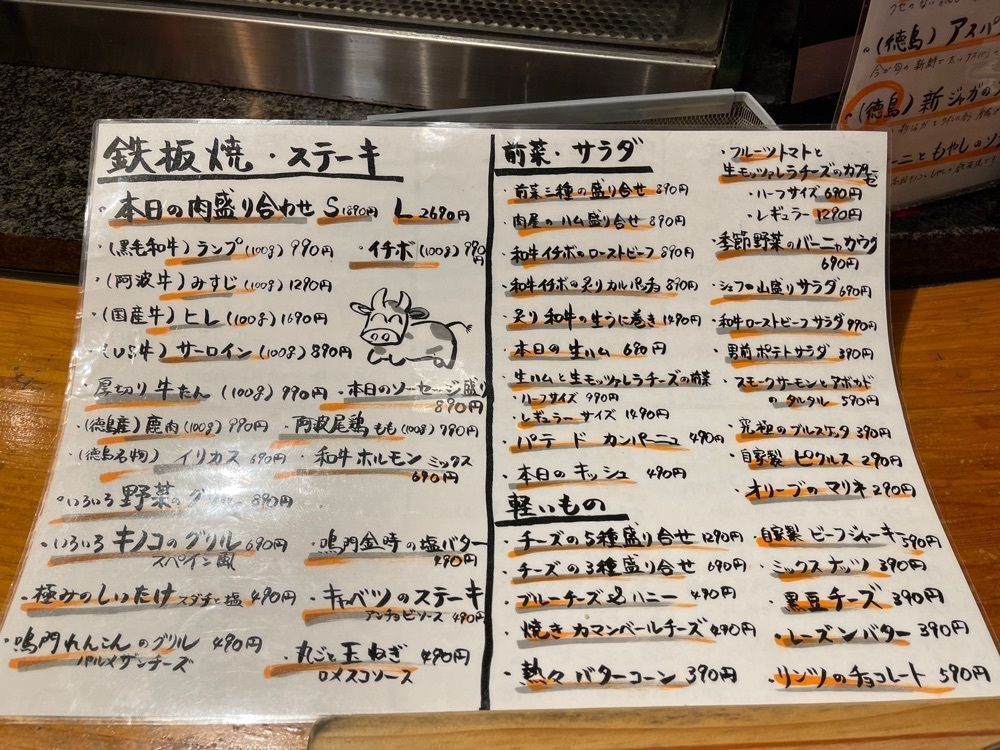 鉄板焼・ステーキ
・本日の肉盛り合わせ S1890円 L 2690円
・(黒毛和牛)ランプ(100g)990円
・イチボ(100g)990円
・(阿波牛)みすじ(100g)1290円
・(国産牛)ヒレ(100g)1690円
・(US牛)サーロイン(100g)890円
・厚切り牛たん(100g)990円
・本日のソーセージ盛り
890円
・(徳島産)鹿肉(100g)990円
・阿波尾鶏もも(100g)790円
・(徳島名物)イリカス 690円
・和牛ホルモンミックス
690円
・いろいろ野菜のグリル 890円
・いろいろキノコのグリル690円
スペイン風
・鳴門金時の塩バター
490円
・極みのしいたけ スダチと塩 490円
・キャベツのステーキ
アンチョビソース 490円
・鳴門れんこんのグリル 490円
パルメザンチーズ
・丸ごと玉ねぎ 490円
ロメスコソース
前菜・サラダ
・前菜三種の盛り合せ 890円
・肉屋のハム盛り合せ 890円
・和牛イチボのローストビーフ 890円
・和牛イチボの炙りカルパッチョ 890円
・炙り和牛の生うに巻き 1490円
・本日の生ハム 690円
・生ハムと生モッツァレラチーズの前菜
・ハーフサイズ 990円
・レギュラーサイズ 1490円
・パテ ド カンパーニュ 490円
・本日のキッシュ 490円
・フルーツトマトと
生モッツァレラチーズのカプレーゼ
・ハーフサイズ 690円
・レギュラー 1290円
・季節野菜のバーニャカウダ
690円
・シェフの山盛りサラダ 690円
・和牛ローストビーフサラダ 990円
・男前ポテトサラダ 390円
・スモークサーモンとアボカド
のタルタル 590円
・究極のブルスケッタ 390円
・自家製ピクルス 290円
・オリーブのマリネ 290円
軽いもの
・チーズの5種盛り合せ 1290円
・チーズの3種盛り合せ 690円
・ブルーチーズ&ハニー 490円
・焼きカマンベールチーズ 490円
・熱々バターコーン 390円
・自家製ビーフジャーキー590円
・ミックスナッツ 390円
・黒豆チーズ 390円
・レーズンバター 390円
・リンツのチョコレート 590円
・(徳島)アスパ
(徳島)新ジャガの